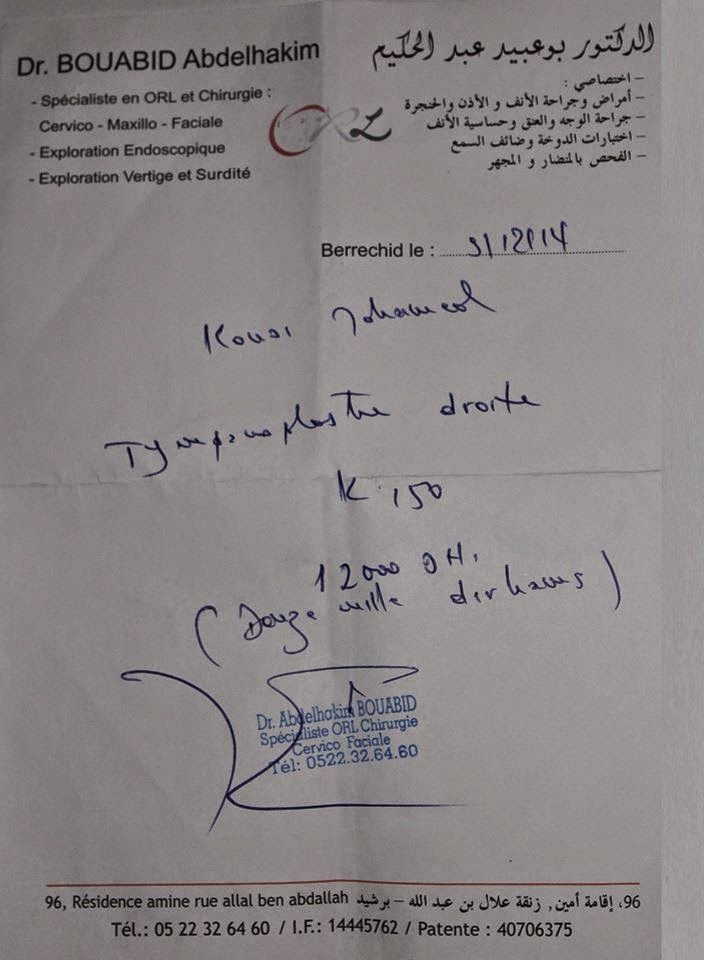 Dr. BOUABID Abdelhakim
- Spécialiste en ORL et Chirurgie :
Cervico - Maxillo - Faciale
- Exploration Endoscopique
- Exploration Vertige et Surdité
ORL
الدكتور بوعبيد عبد الحكيم
– اختصاصي :
– أمراض وجراحة الأنف و الأذن والحنجرة
– جراحة الوجه والعنق وحساسية الأنف
– اختبارات الدوخة وضائف السمع
– الفحص بالمنضار و المجهر
Berrechid le : 9/12/14
Mohamed
Tympanoplastie droite
K 150
12000 DH.
(Douze mille dirhams)
Dr. Abdelhakim BOUABID
Spécialiste ORL Chirurgie
Cervico Faciale
Tél: 0522.32.64.60
96, Résidence amine rue allal ben abdallah 96، إقامة أمين, زنقة علال بن عبد الله – برشيد
Tél.: 05 22 32 64 60 / I.F.: 14445762 / Patente : 40706375